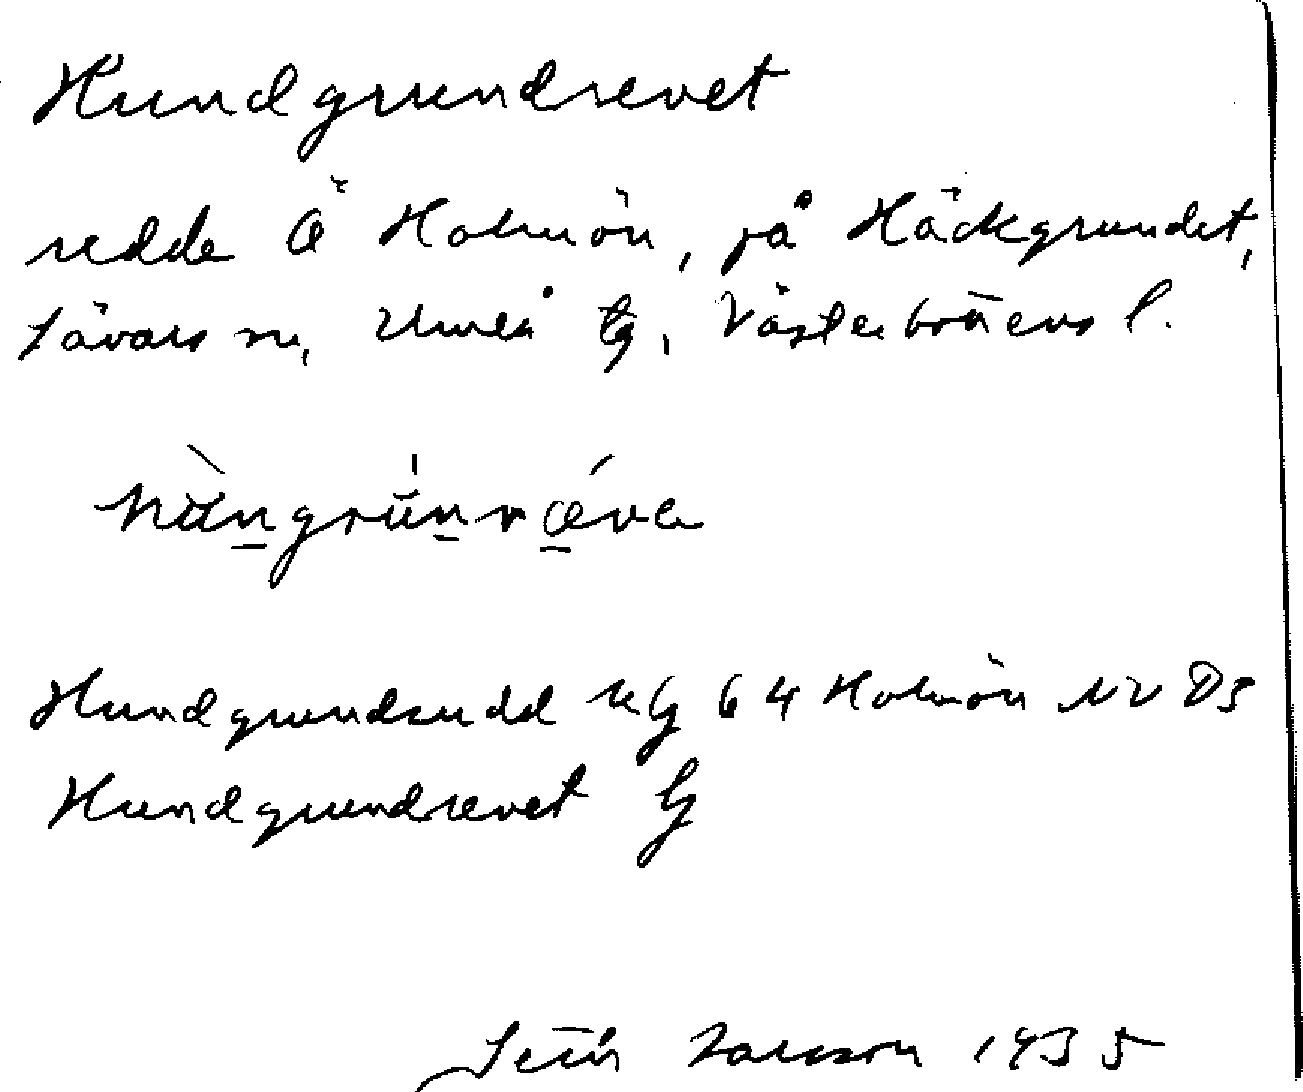 Hundgrundrevet
redde Ö Holmön, på Häckgrundet,
Sävars sn, Umeå tg, Västerbottens l.
Hundgrundsudd 64 Holmön NV
Hundgrundrevet
Larsson 1935